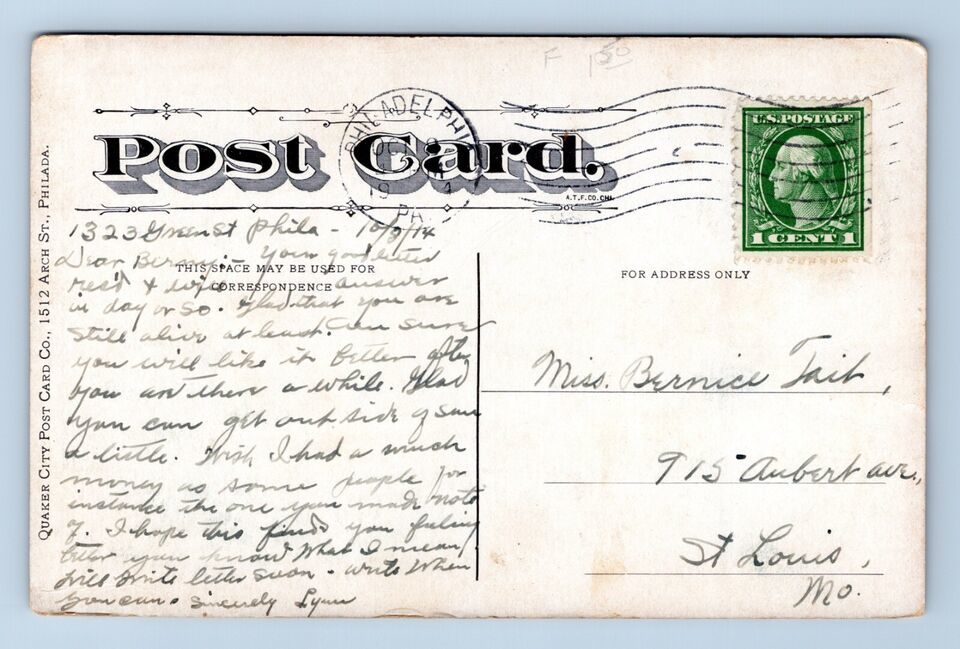 F 1.50
Post Card.
A.T.F.CO.CHI.
PHILADELPHIA
PA.
U.S. POSTAGE
1 CENT 1
QUAKER CITY POST CARD CO., 1512 ARCH ST., PHILADA.
THIS SPACE MAY BE USED FOR
CORRESPONDENCE
FOR ADDRESS ONLY
1323 Green St Phila - 10/9/14
Dear Bernice - Your good letter
rec'd & will answer
in day or so. Glad that you are
still alive at least. Am sure
you will like it better after
you are there a while. Glad
you can get out side of
a little. Wish I had a much
money as some people for
instance the one you made note
of. I hope this finds you feeling
better you know what I mean
Will write letter soon - write when
you can. Sincerely Lynn
Miss. Bernice Tait,
915 Aubert ave.,
St Louis,
Mo.